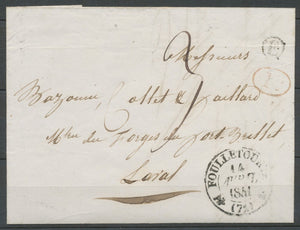 Messieurs
Bazouin, Collet & Gaillard
Mtres des Forges du Port Brillet
Laval
FOULLETOURTE
14
1851
(71)